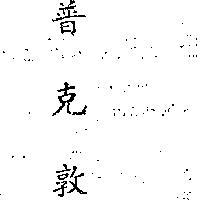 普克敦